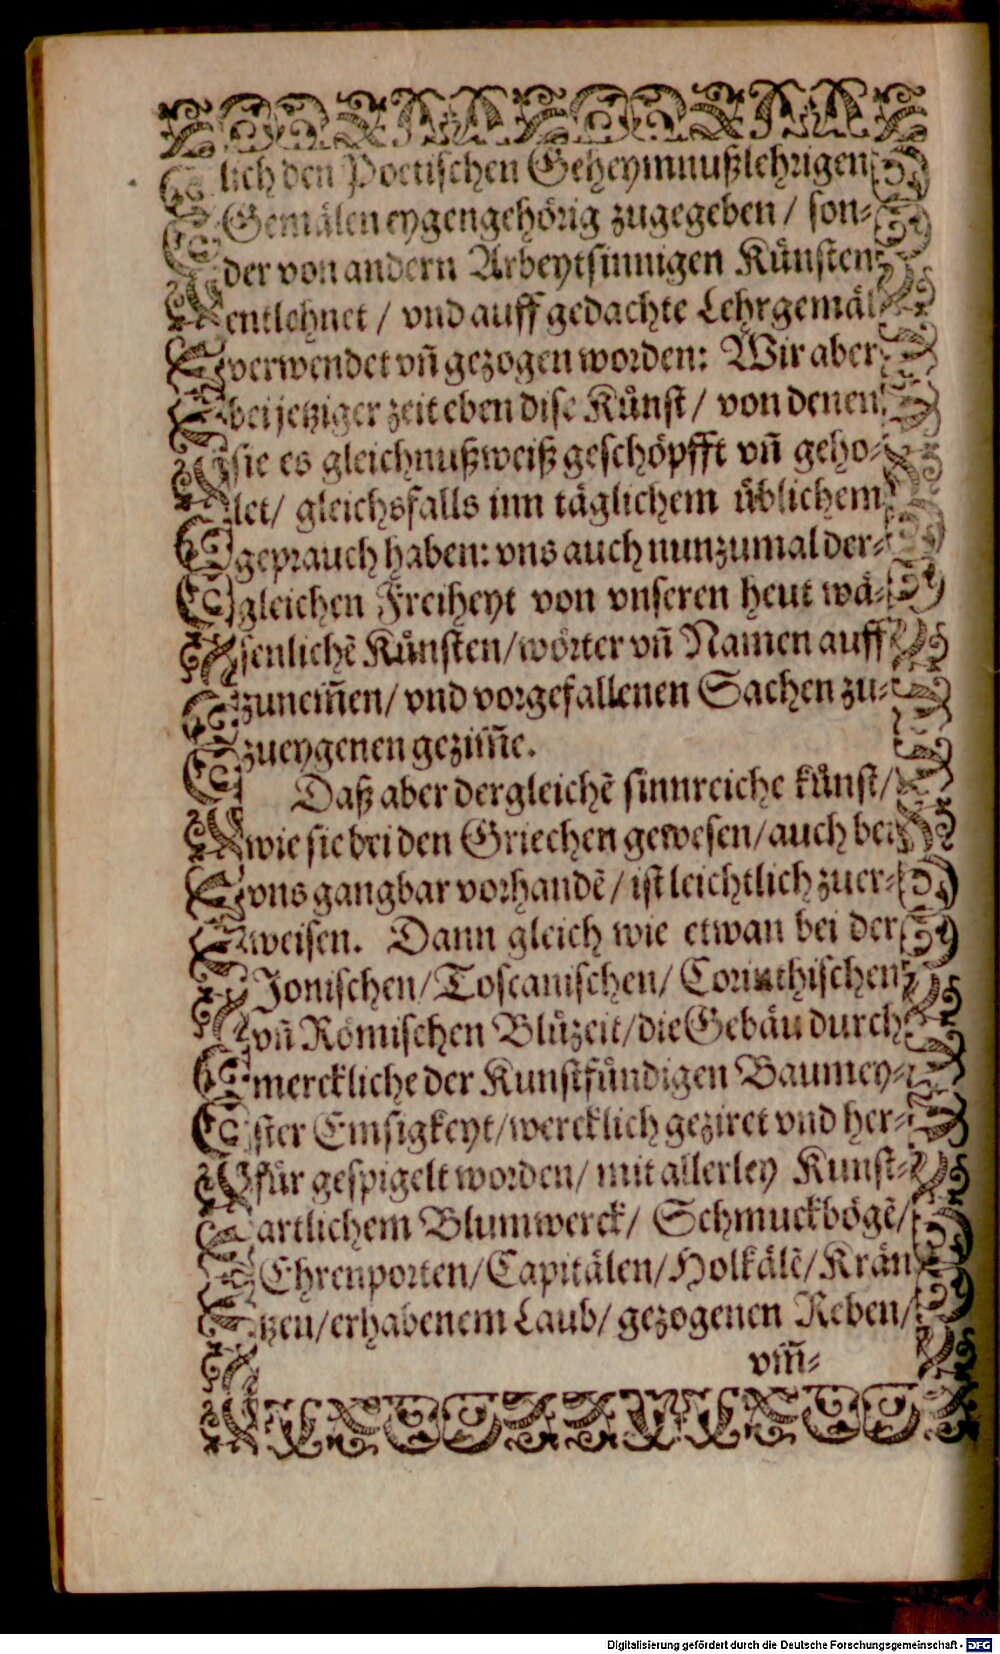 lich den Poetischen Geheymnußlehrigen
Gemälen eygengehörig zugegeben / son-
der von andern Arbeytsinnigen Künsten
entlehnet / vnd auff gedachte Lehrgemäl
verwendet vñ gezogen worden: Wir aber
bei jetziger zeit eben dise Künst / von denen
sie es gleichnußweiß geschöpfft vñ geho-
let / gleichsfalls inn täglichem üblichem
geprauch haben: vns auch nunzumal der-
gleichen Freiheyt von vnseren heut wä-
senlichẽ Künsten / wörter vñ Namen auff
zunem̃en / vnd vorgefallenen Sachen zu-
zueygenen gezim̃e.
Daß aber dergleichẽ sinnreiche künst /
wie sie bei den Griechen gewesen / auch bei
vns gangbar vorhandẽ / ist leichtlich zuer-
weisen. Dann gleich wie etwan bei der
Jonischen / Toscanischen / Corinthischen
vñ Römischen Blüzeit / die Gebäu durch
merckliche der Kunstfündigen Baumey-
ster Emsigkeyt / wercklich geziret vnd her-
für gespigelt worden / mit allerley Kunst-
artlichem Blumwerck / Schmuckbögẽ /
Ehrenporten / Capitälen / Holkälẽ / Krän
tzen / erhabenem Laub / gezogenen Reben /
vm̃-
Digitalisierung gefördert durch die Deutsche Forschungsgemeinschaft - DFG